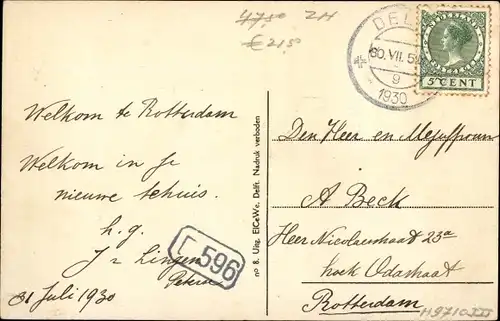 4750 ZH
€ 215
DEL
30.VII.5
9
1930
NEDERLAND
5 CENT
Welkom te Rotterdam
Welkom in je
nieuwe tehuis.
h.g.
J v Lingen
31 Juli 1930
596
no 8. Uitg. ElCeWe, Delft. Nadruk verboden
Den Heer en Mejuffrouw
A Beck
Heer Nicolaasstraat 23a
hoek Odastraat
Rotterdam
H9710III